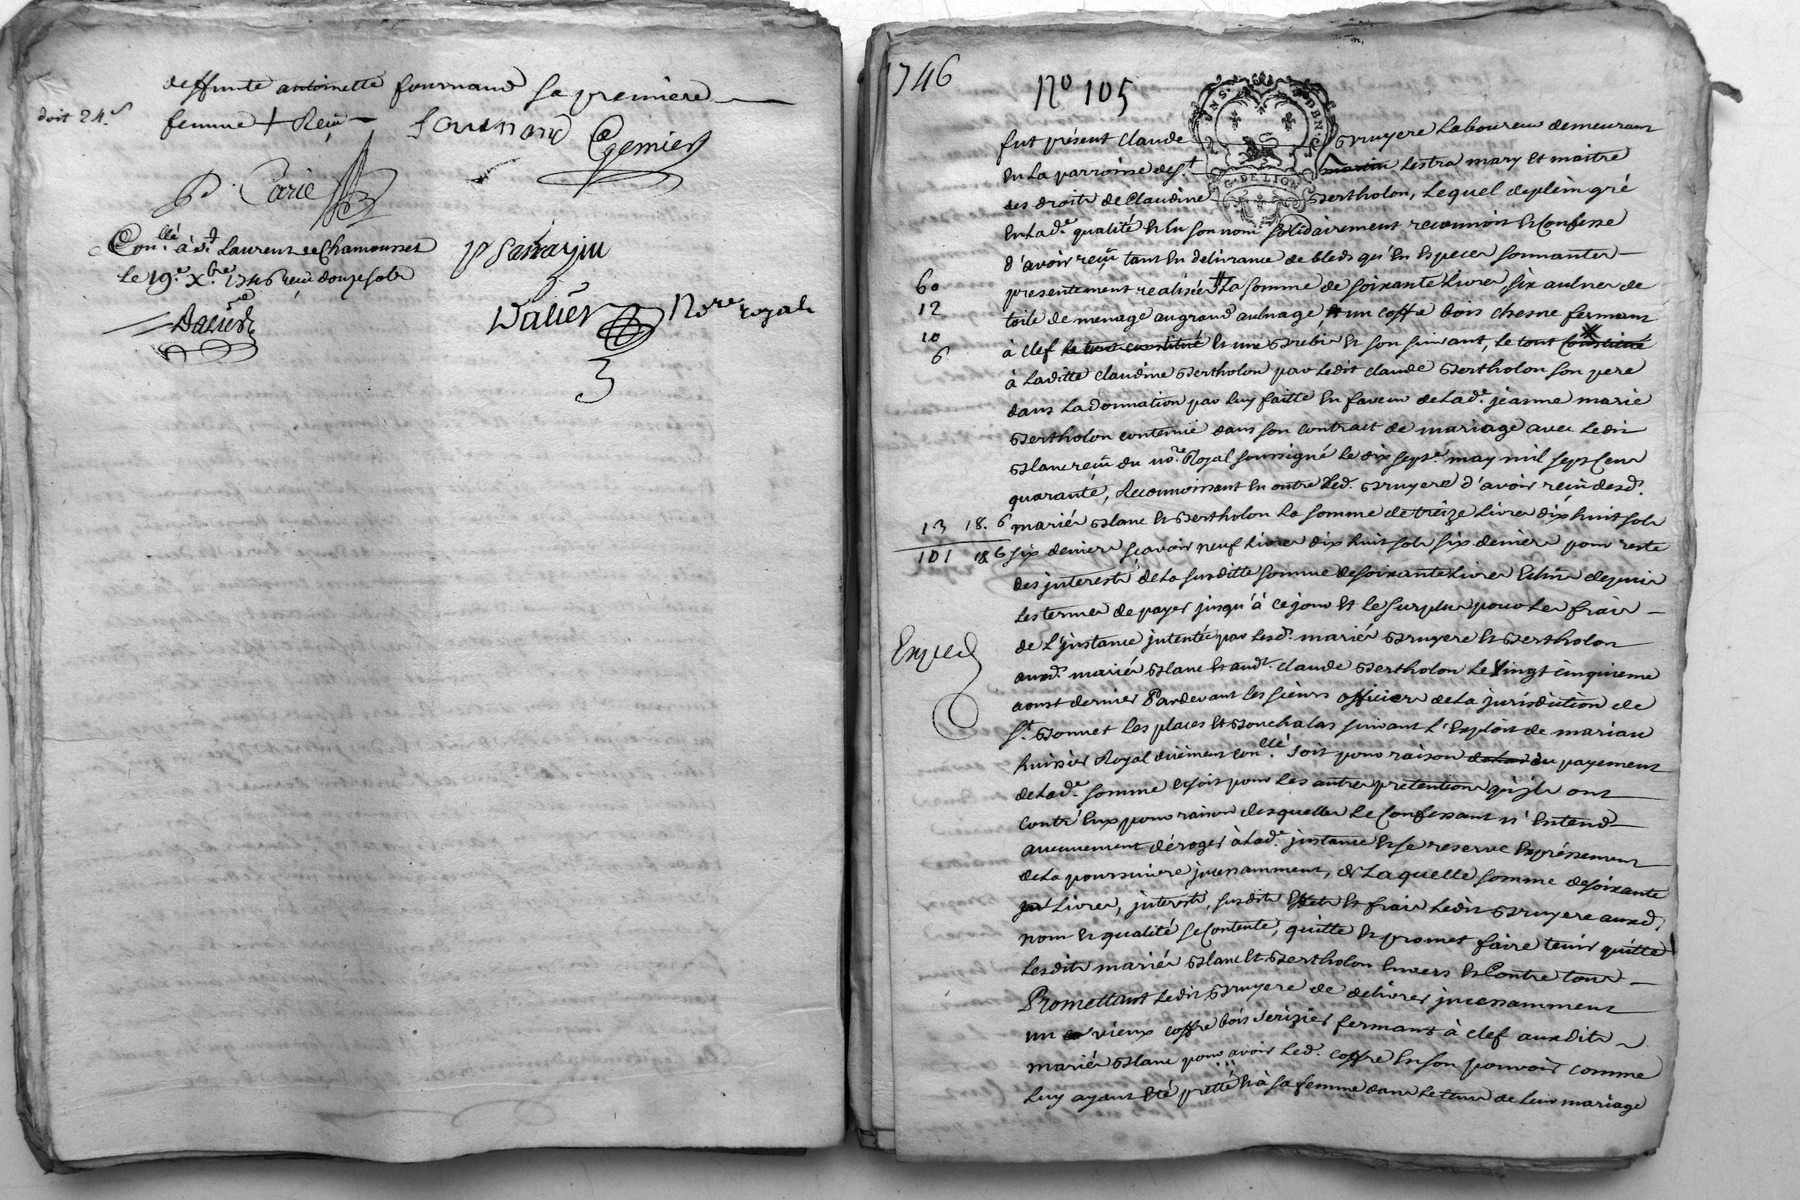 deffunte antoinette fournand sa premiere
doit 24.s
femme + Reçu fournand Cgemier
P. Carié
Con.llé à S.t Laurent de Chamousset
le 19.e X.bre 1746 reçu douze sols
Dalier
P Sarrazin
Dalier No.re royal
1746
N.o 105
UNS. DEN.
G. DE LION
fut présent Claude Bruyere Laboureur demeurant
en La parroisse de S.t Lestra mary et maitre
des droits de Claudine Bertholon, Lequel de plein gré
en Lad.e qualité et en son nom solidairement reconnoit et Confesse
d'avoir reçu tant en délivrance de bleds qu'en Especes sonnantes
60
presentement realisées La somme de soixante Livres, six aulnes de
12
toile de menage au grand aulnage, un coffre bois chesne fermant
10
6
à clef le tout constitué et une Brebis et son suivant, le tout constitué
à Laditte Claudine Bertholon par Ledit Claude Bertholon son pere
dans La donnation par Luy faitte en faveur de Lad.e jeanne marie
Bertholon contenüe dans son contract de mariage avec Ledit
Blanc reçu du no.re Royal soussigné le dix sept.e may mil sept Cent
quarante, Reconnoissant en outre Led. Bruyere d'avoir reçu desd.
13 18. 6
mariés Blanc et Bertholon La somme de treize Livres dix huit sols
101 18 6
six deniers sçavoir neuf Livres dix huit sols six deniers pour reste
des jnterests de La susditte somme de soixante Livres depuis
Les termes de payes jusqu'à ce jour et le surplus pour Les frais
de L'jnstance jntentée par Lesd. mariés Bruyere et Bertholon
Exped
auxd. mariés Blanc et aud. Claude Bertholon Le Vingt cinquieme
aoust dernier Pardevant Les sieurs officiers de La jurisdiction de
S.t Bonnet Les places et Souchalas suivant l'Exploit de
huissier Royal düement con.llé Soit pour raison du payement
de Lad.e somme et soit pour Les autres pretentions qu'jls ont
contre Eux pour raison desquelles Le Confessant n'Entend
aucunement déroger à Lad.e jnstance et se reserve Expréssement
de La poursuivre jncessamment, de Laquelle somme de soixante
Livres, jnterests, susdits Effets et frais Ledit Bruyere auxd.
nom et qualité se Contente, quitte et promet faire tenir quitte
Lesdits mariés Blanc et Bertholon Envers et Contre tous
Promettant Ledit Bruyere de delivrer jncessamment
un vieux coffre bois serizier fermant à clef auxdits
mariés Blanc pour avoir Led. coffre en son pouvoir comme
Luy ayant été pretté et à sa femme dans Le tems de Leur mariage